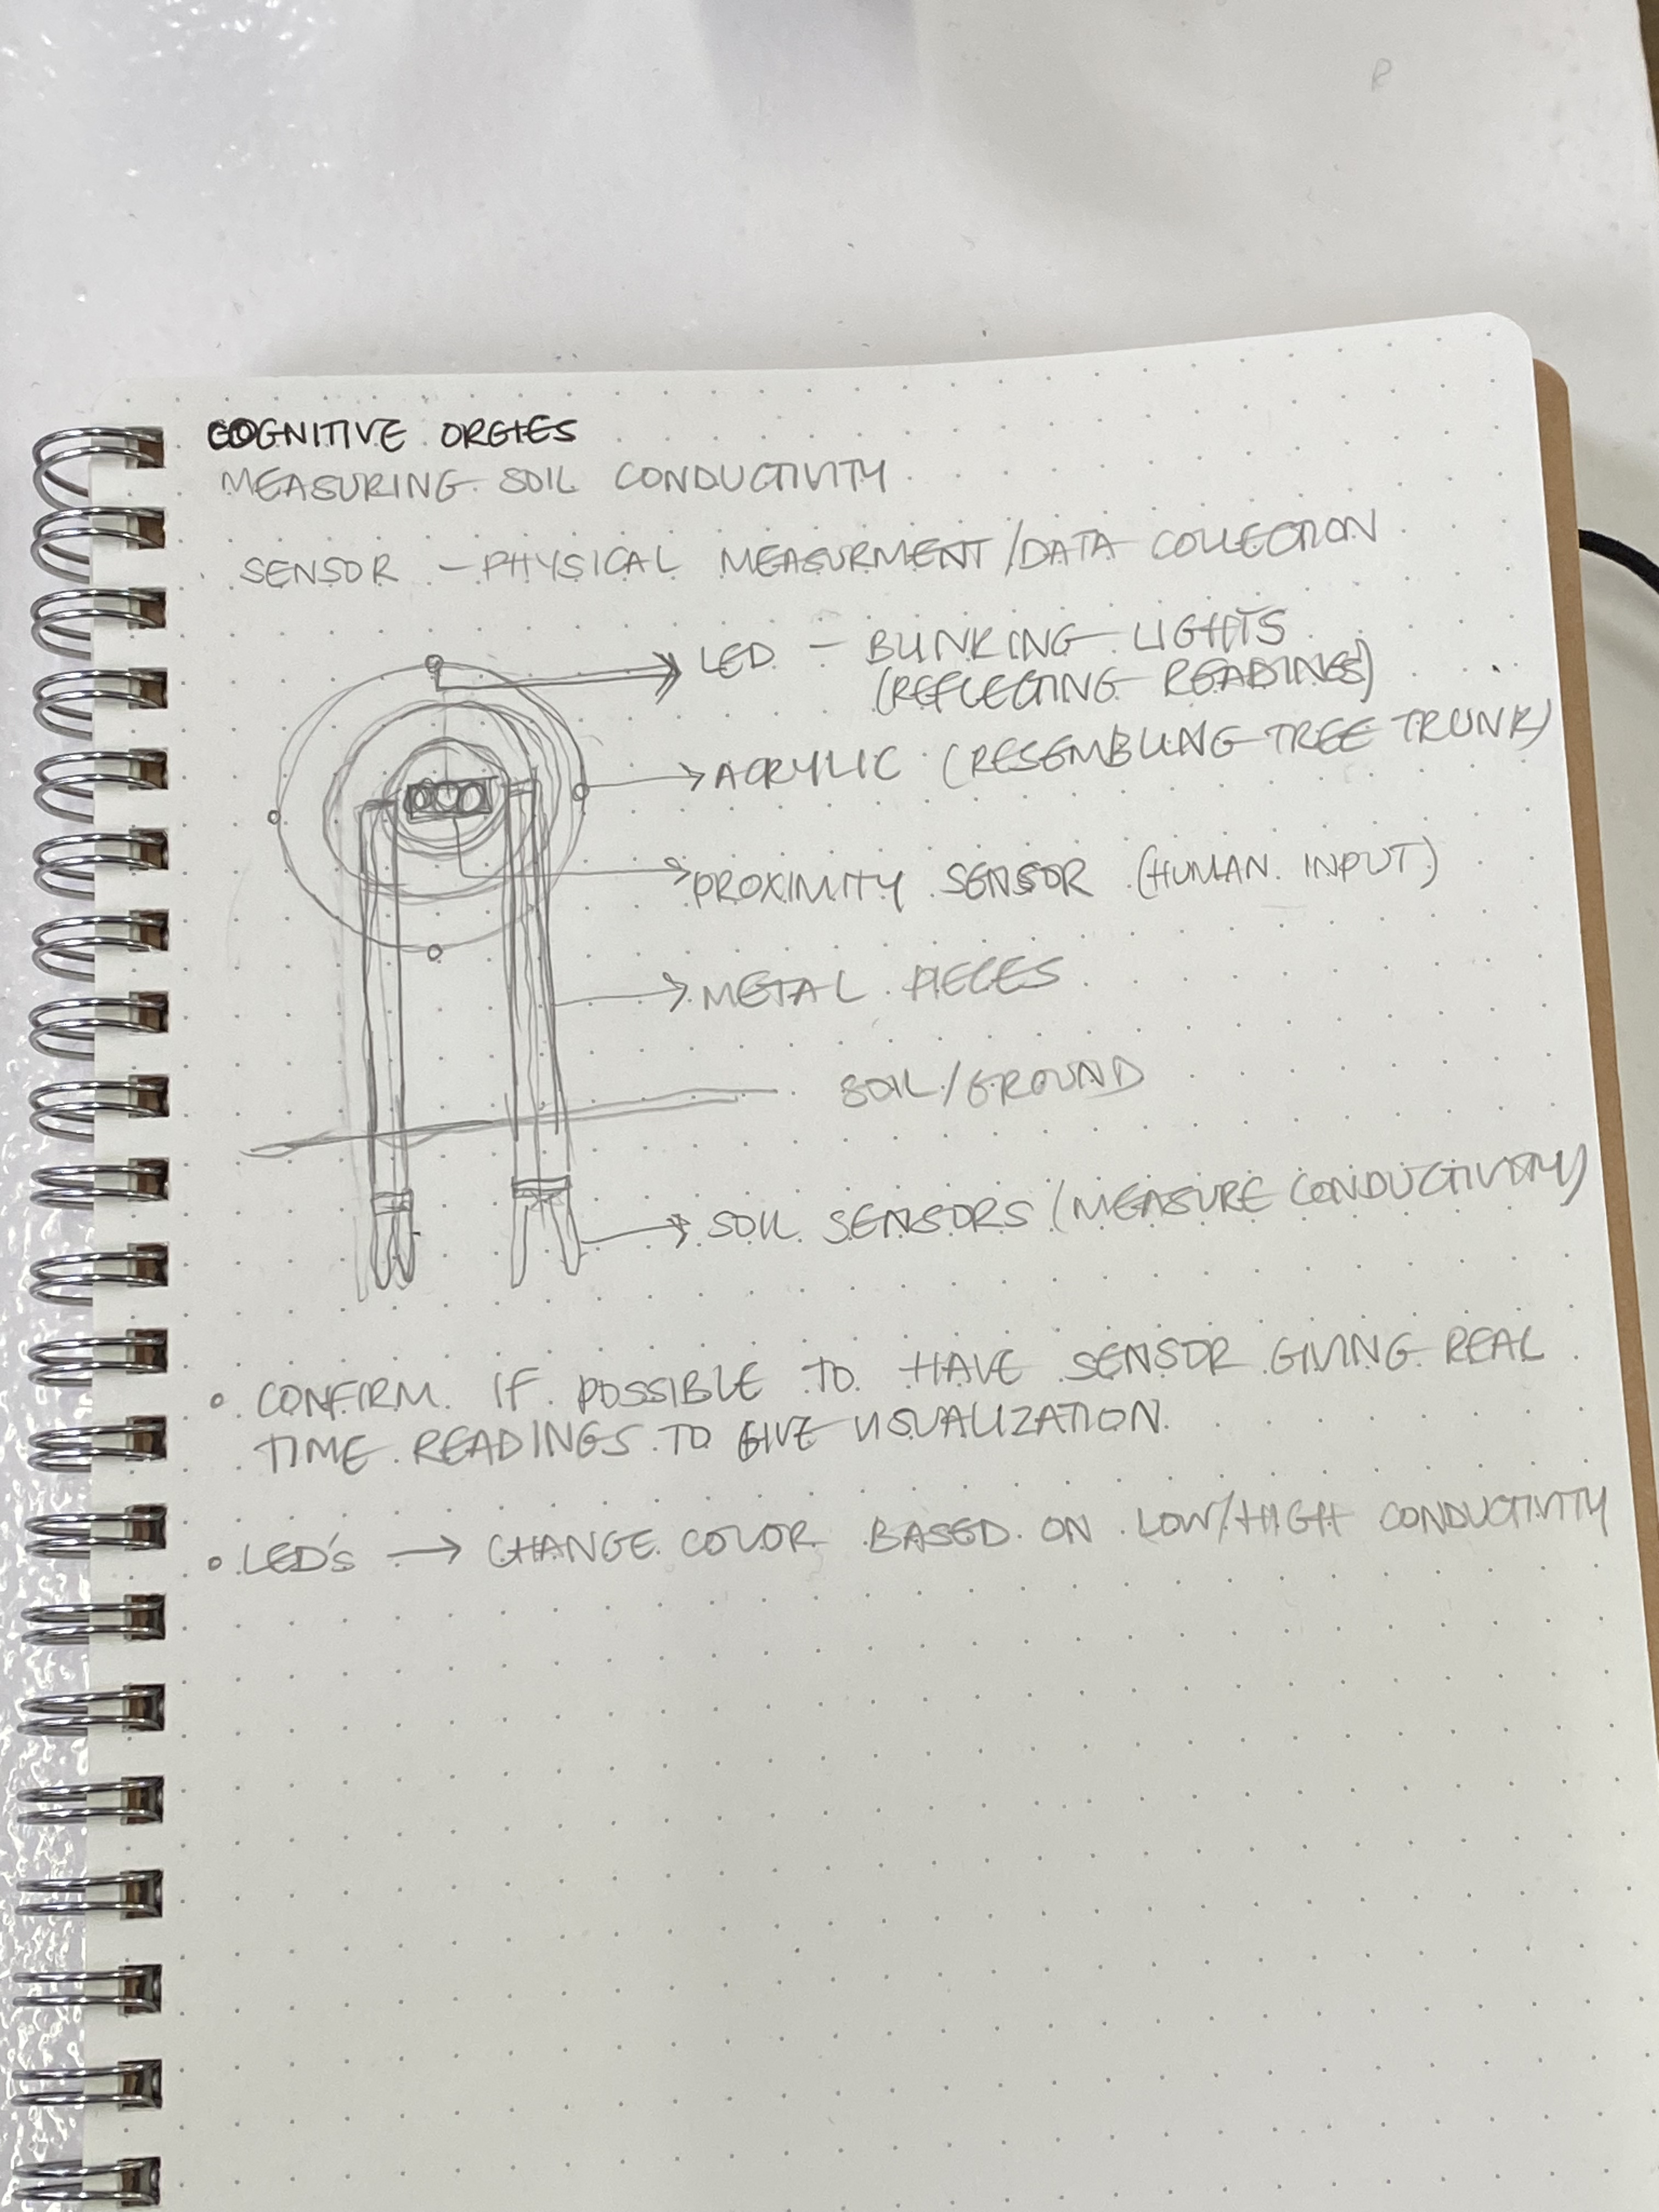 COGNITIVE ORGIES
MEASURING SOIL CONDUCTIVITY
SENSOR – PHYSICAL MEASURMENT/DATA COLLECTION
LED – BLINKING LIGHTS
(REFLECTING READINGS)
ACRYLIC (RESEMBLING TREE TRUNK)
PROXIMITY SENSOR (HUMAN INPUT)
METAL PIECES
SOIL/GROUND
SOIL SENSORS (MEASURE CONDUCTIVITY)
• CONFIRM IF POSSIBLE TO HAVE SENSOR GIVING REAL
TIME READINGS TO GIVE VISUALIZATION.
• LED'S → CHANGE COLOR BASED ON LOW/HIGH CONDUCTIVITY